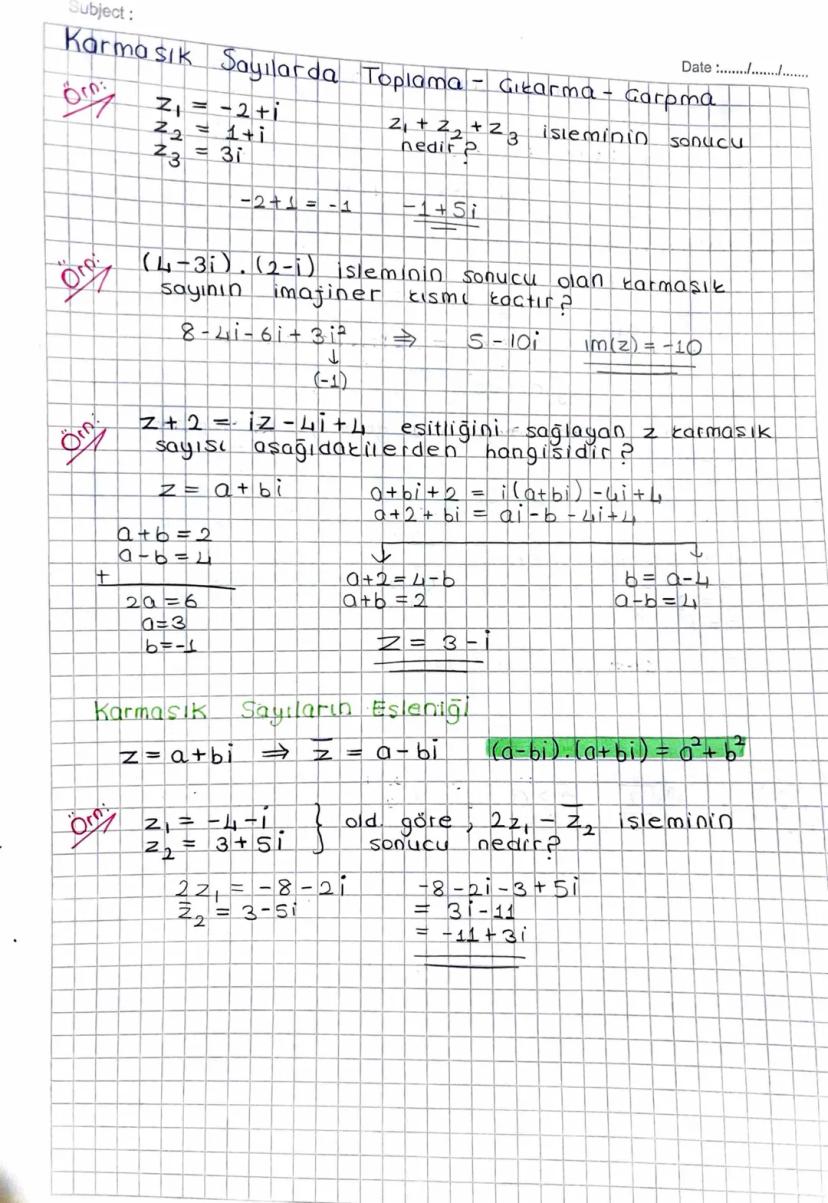 Subject :
Karmaşık Sayılarda Toplama - Çıkarma - Çarpma
Date :....../....../......
Örn:
z₁ = -2+i
z₂ = 1+i
z₃ = 3i
z₁ + z₂ + z₃ işleminin sonucu
nedir?
-2+1 = -1
-1+5i
Örn:
(4-3i).(2-i) işleminin sonucu olan karmaşık
sayının imajiner kısmı kaçtır?
8-4i-6i+3i² ⇒ 5-10i im(z) = -10
↓
(-1)
Örn:
z+2 = iz-4i+4 eşitliğini sağlayan z karmaşık
sayısı aşağıdakilerden hangisidir?
z = a+bi
a+bi+2 = i(a+bi)-4i+4
a+2+bi = ai-b-4i+4
a+b=2
a-b=4
+
2a=6
a=3
b=-1
a+2=4-b
a+b=2
b=a-4
a-b=4
z = 3-i
Karmaşık Sayıların Eşleniği
z=a+bi ⇒ z̅ = a-bi (a-bi).(a+bi) = a²+b²
Örn:
z₁ = -4-i
z₂ = 3+5i
} old. göre ; 2z₁ - z̅₂ işleminin
sonucu nedir?
2z₁ = -8-2i
z̅₂ = 3-5i
-8-2i-3+5i
= 3i-11
= -11+3i